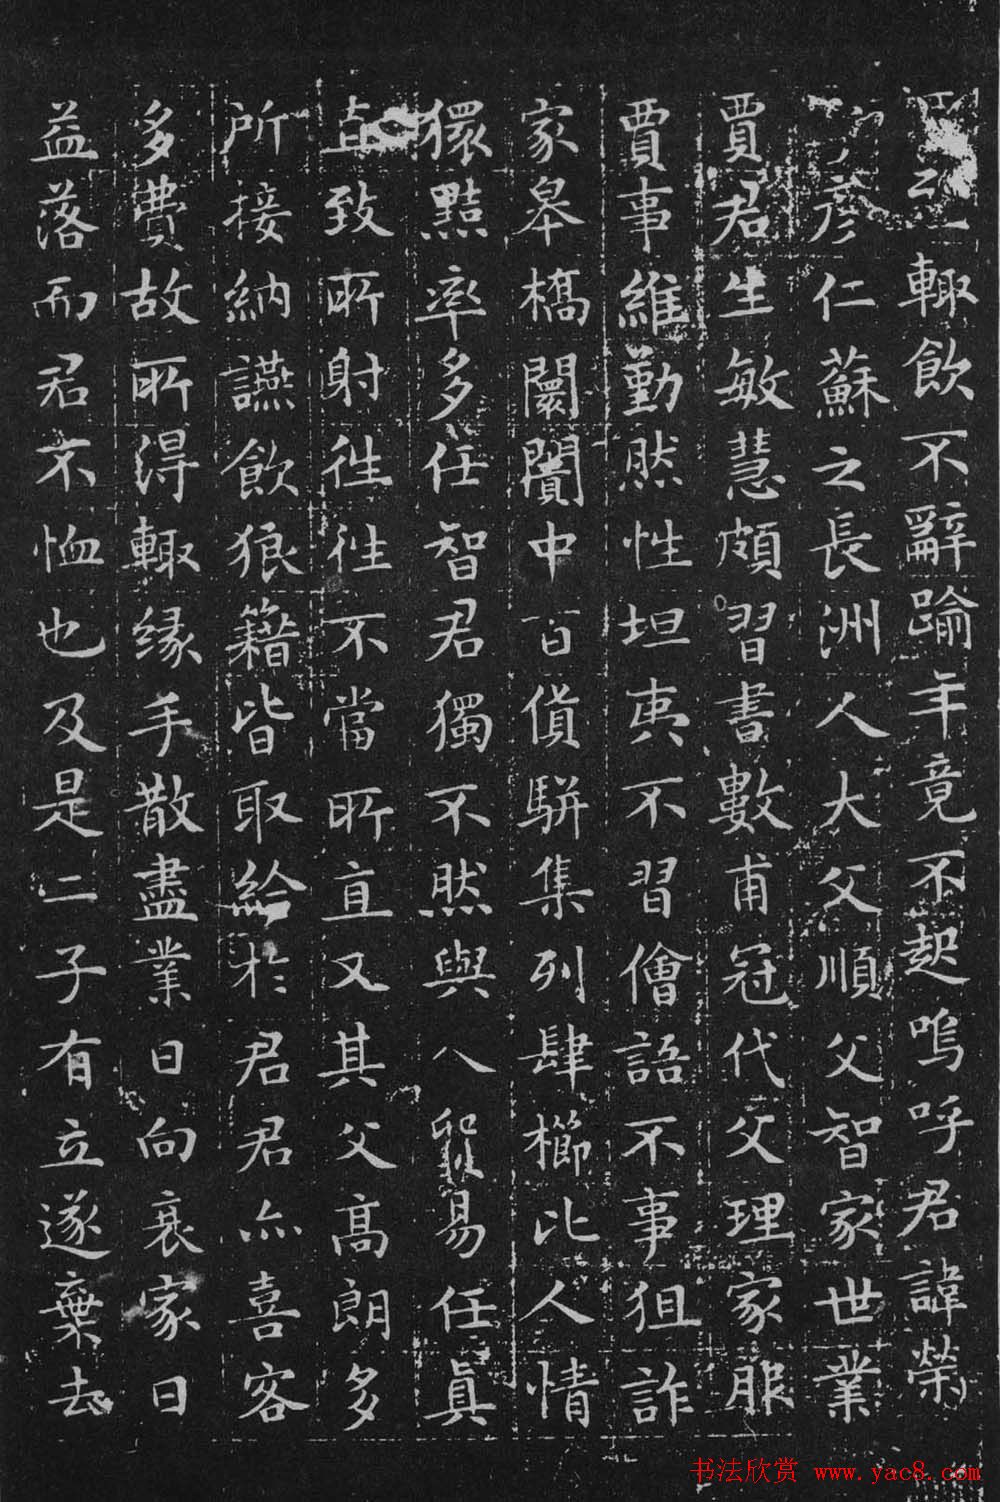 輙飲不辭踰年竟不起嗚呼君諱榮
彦仁蘇之長洲人大父順父智家世業
賈君生敏慧頗習書數甫冠代父理家服
賈事維勤然性坦夷不習儈語不事狙詐
家皋橋闤闠中百貨駢集列肆櫛比人情
獧黠率多任智君獨不然與人貿易任眞
直致所射徃徃不當所直又其父高朗多
所接納讌飲狼籍皆取給於君君亦喜客
多費故所得輙緣手散盡業日向衰家日
益落而君不恤也及是二子有立遂棄去
书法欣赏 www.yac8.com